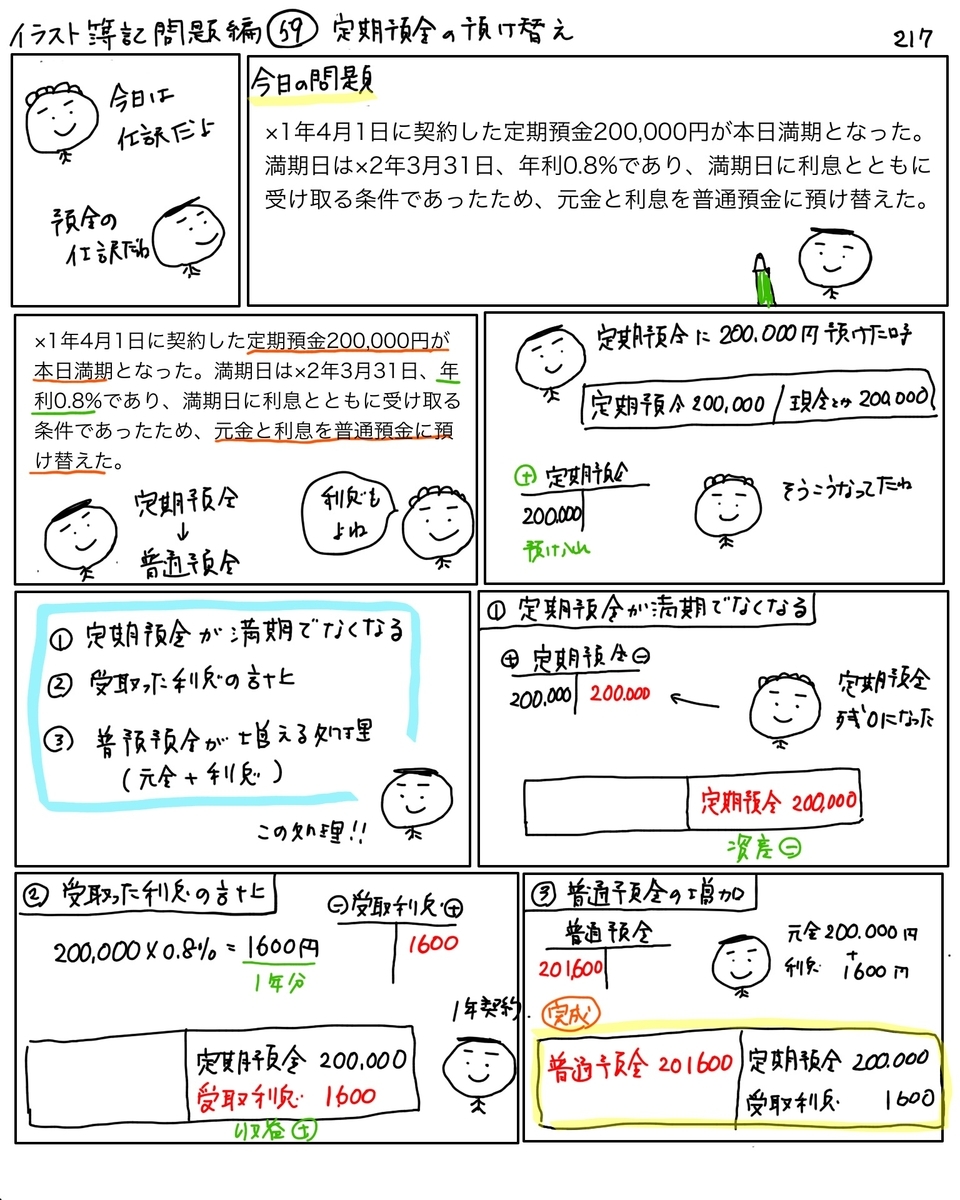 イラスト簿記問題編59 定期預金の預け替え
217
今日は
仕訳だよ
預金の
仕訳だね
今日の問題
×1年4月1日に契約した定期預金200,000円が本日満期となった。
満期日は×2年3月31日、年利0.8%であり、満期日に利息とともに
受け取る条件であったため、元金と利息を普通預金に預け替えた。
×1年4月1日に契約した定期預金200,000円が
本日満期となった。満期日は×2年3月31日、年
利0.8%であり、満期日に利息とともに受け取る
条件であったため、元金と利息を普通預金に預
け替えた。
定期預金
↓
普通預金
利息も
よね
定期預金に200.000円預けた時
定期預金 200,000 / 現金とか 200,000
⊕ 定期預金
200.000
預け入れ
そうこうなってたね
① 定期預金が満期でなくなる
② 受取った利息の計上
③ 普預預金が増える処理
(元金+利息)
この処理!!
① 定期預金が満期でなくなる
⊕ 定期預金 ⊖
200,000 200.000
←
定期預金
残0になった
定期預金 200,000
資産 ⊖
② 受取った利息の計上
200,000×0.8% = 1600円
1年分
⊖ 受取利息 ⊕
1600
1年契約.
定期預金 200,000
受取利息 1600
収益 ⊕
③ 普通預金の増加
普通預金
201600
元金200.000円
+
利息 1600円
完成
普通預金 201600 定期預金 200.000
受取利息 1600